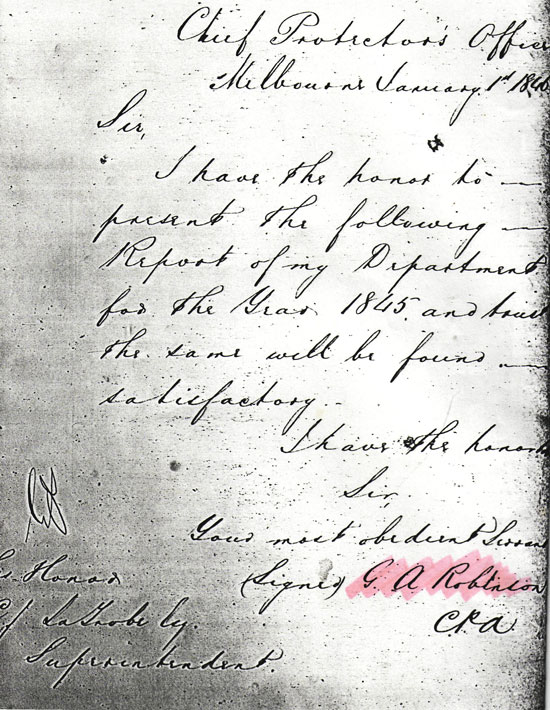 Chief Protector's Office
Melbourne January 1st 1846
Sir,
I have the honor to —
present the following —
Report of my Department
for the Year 1845. and trust
the same will be found —
satisfactory. -
I have the honor
Sir,
Your most obedient Servant
(Signed) G. A Robinson
C.P.A.
Honor
C J LaTrobe Esq.
Superintendent.